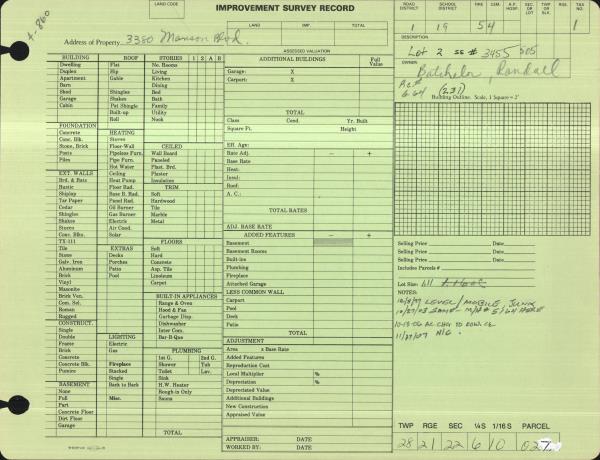 IMPROVEMENT SURVEY RECORD
LAND CODE
ROAD DISTRICT
SCHOOL DISTRICT
FIRE
CEM.
A.P. HOSP.
REG.
TAX NO.
1 19 54 1
LAND IMP. TOTAL
Address of Property 3380 Monson Blvd.
ASSESSED VALUATION
DESCRIPTION
Lot 2 SS # 3455
OWNER
Batchelor, Randall
(231)
Building Outline: Scale, 1 Square = 2'
BUILDING
Dwelling
Duplex
Apartment
Barn
Shed
Garage
Cabin
ROOF
Flat
Hip
Gable
Shingles
Shakes
Pat Shingle
Built-up
Roll
STORIES 1 2 A B
No. Rooms
Living
Kitchen
Dining
Bed
Bath
Family
Utility
Nook
FOUNDATION
Concrete
Conc. Blk.
Stone, Brick
Posts
Piles
HEATING
Stoves
Floor-Wall
Pipeless Furn.
Pipe Furn.
Hot Water
Ceiling
Heat Pump
Floor Rad.
Base B. Rad.
Panel Rad.
Oil Burner
Gas Burner
Electric
Air Cond.
Solar
CEILED
Wall Board
Paneled
Plast. Brd.
Plaster
Insulation
TRIM
Soft
Hardwood
Tile
Marble
Metal
EXT. WALLS
Brd. & Bats
Rustic
Shiplap
Tar Paper
Cedar
Shingles
Shakes
Stucco
Conc. Blks.
TX-111
Tile
Stone
Galv. Iron
Aluminum
Brick
Vinyl
Masonite
Brick Ven.
Com. Sel.
Roman
Rugged
EXTRAS
Decks
Porches
Patio
FLOORS
Soft
Hard
Concrete
Asp. Tile
Linoleum
Carpet
BUILT-IN APPLIANCES
Range & Oven
Hood & Fan
Garbage Disp.
Dishwasher
Inter Com.
Bar-B-Que
CONSTRUCT.
Single
Double
Frame
Brick
Concrete
Concrete Blk.
Pumice
LIGHTING
Electric
Gas
Fireplace
Stacked
Single
Back to Back
PLUMBING
1st G. 2nd G.
Shower Tub
Toilet Lav.
Sink
H.W. Heater
Rough-in Only
Sauna
BASEMENT
Full
Part
Concrete Floor
Dirt Floor
Garage
Misc.
TOTAL
ADDITIONAL BUILDINGS Full Value
Garage: X
Carport: X
TOTAL
Class Cond. Yr. Built
Square Ft. Height
Eff. Age:
Rate Adj. – +
Base Rate
Heat:
Insul:
Roof:
A. C.:
TOTAL RATES
ADJ. BASE RATE
ADDED FEATURES – +
Basement
Basement Rooms
Built-ins
Plumbing
Fireplace
Attached Garage
LESS COMMON WALL
Carport
Pool
Deck
Patio
TOTAL
ADJUSTMENT
Area x Base Rate
Added Features
Reproduction Cost
Local Multiplier %
Depreciation %
Depreciated Value
Additional Buildings
New Construction
Appraised Value
APPRAISER: DATE
WORKED BY: DATE
Selling Price Date
Selling Price Date
Selling Price Date
Includes Parcels #
Lot Size:
NOTES:
LEVEL / MOBILE JUNK
TWP RGE SEC ¼S 1/16 S PARCEL
28 21 22 6 10 027